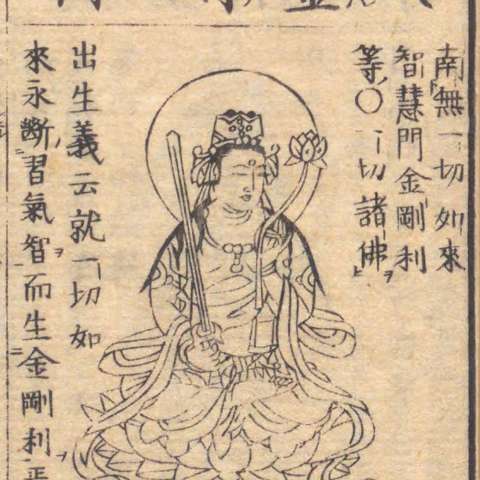 南無一切如來
智慧門金剛利
等〇一切諸佛
出生義云就一切如
來永斷習氣智而生金剛利